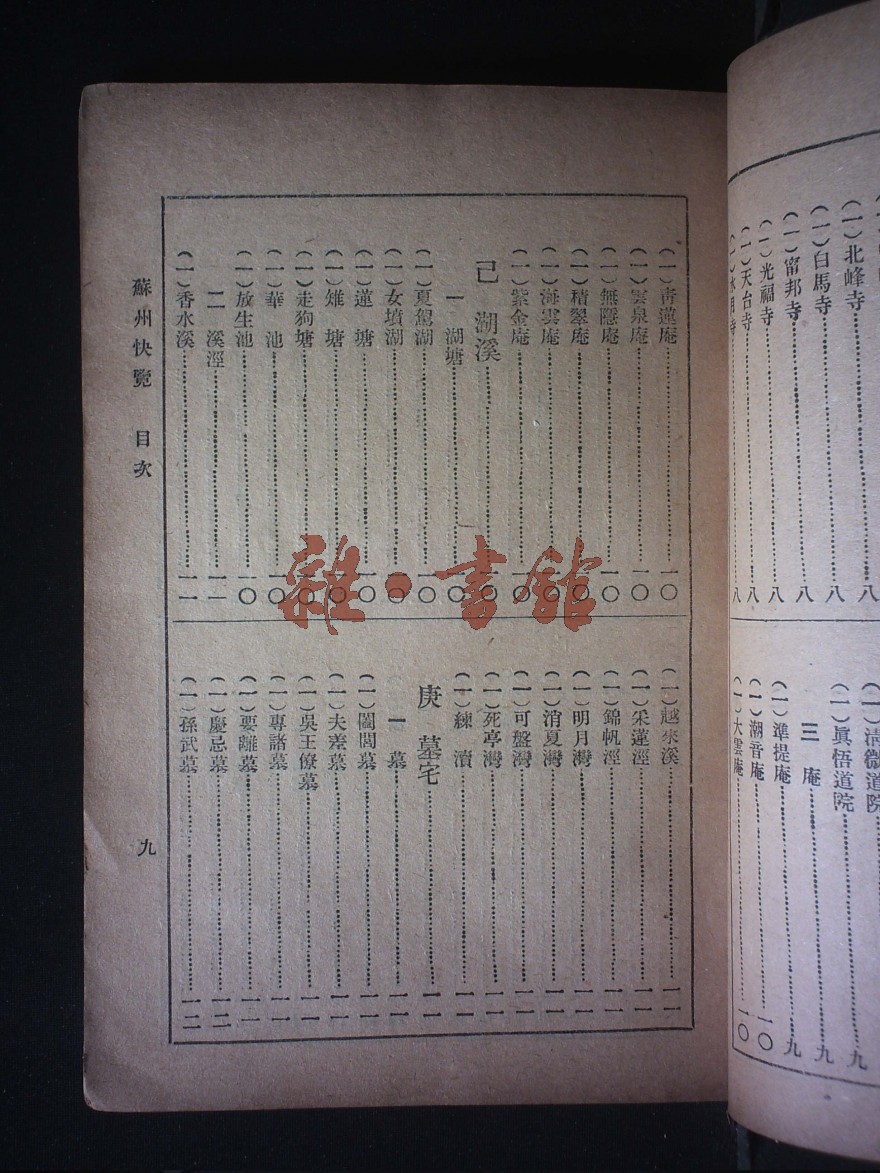 (一)北峰寺……八
(一)白馬寺……八
(一)甯邦寺……八
(一)光福寺……八
(一)天台寺……八
(一)水月寺……八
(一)清微道院
(一)眞悟道院……九
三　庵……九
(一)準提庵……九
(一)潮音庵……一〇
(一)大雲庵……一〇
(一)靑蓮庵……一〇
(一)雲泉庵……一〇
(一)無隱庵……一〇
(一)積翠庵……一〇
(一)海雲庵……一〇
(一)紫金庵……一〇
己　湖溪……一〇
一　湖塘……一〇
(一)夏駕湖……一〇
(一)女墳湖……一〇
(一)蓮　塘……一〇
(一)雉　塘……一〇
(一)走狗塘……一〇
(一)華　池……一〇
(一)放生池……一〇
二　溪涇……一一
(一)香水溪……一一
(一)越來溪……一一
(一)采蓮涇……一一
(一)錦帆涇……一一
(一)明月灣……一一
(一)消夏灣……一一
(一)可盤灣……一一
(一)死亭灣……一一
(一)練　瀆……一一
庚　墓宅……一一
一　墓……一一
(一)闔閭墓……一一
(一)夫差墓……一一
(一)吳王僚墓……一一
(一)專諸墓……一一
(一)要離墓……一一
(一)慶忌墓……一二
(一)孫武墓……一二
蘇州快覽　目次
九
雜·書館